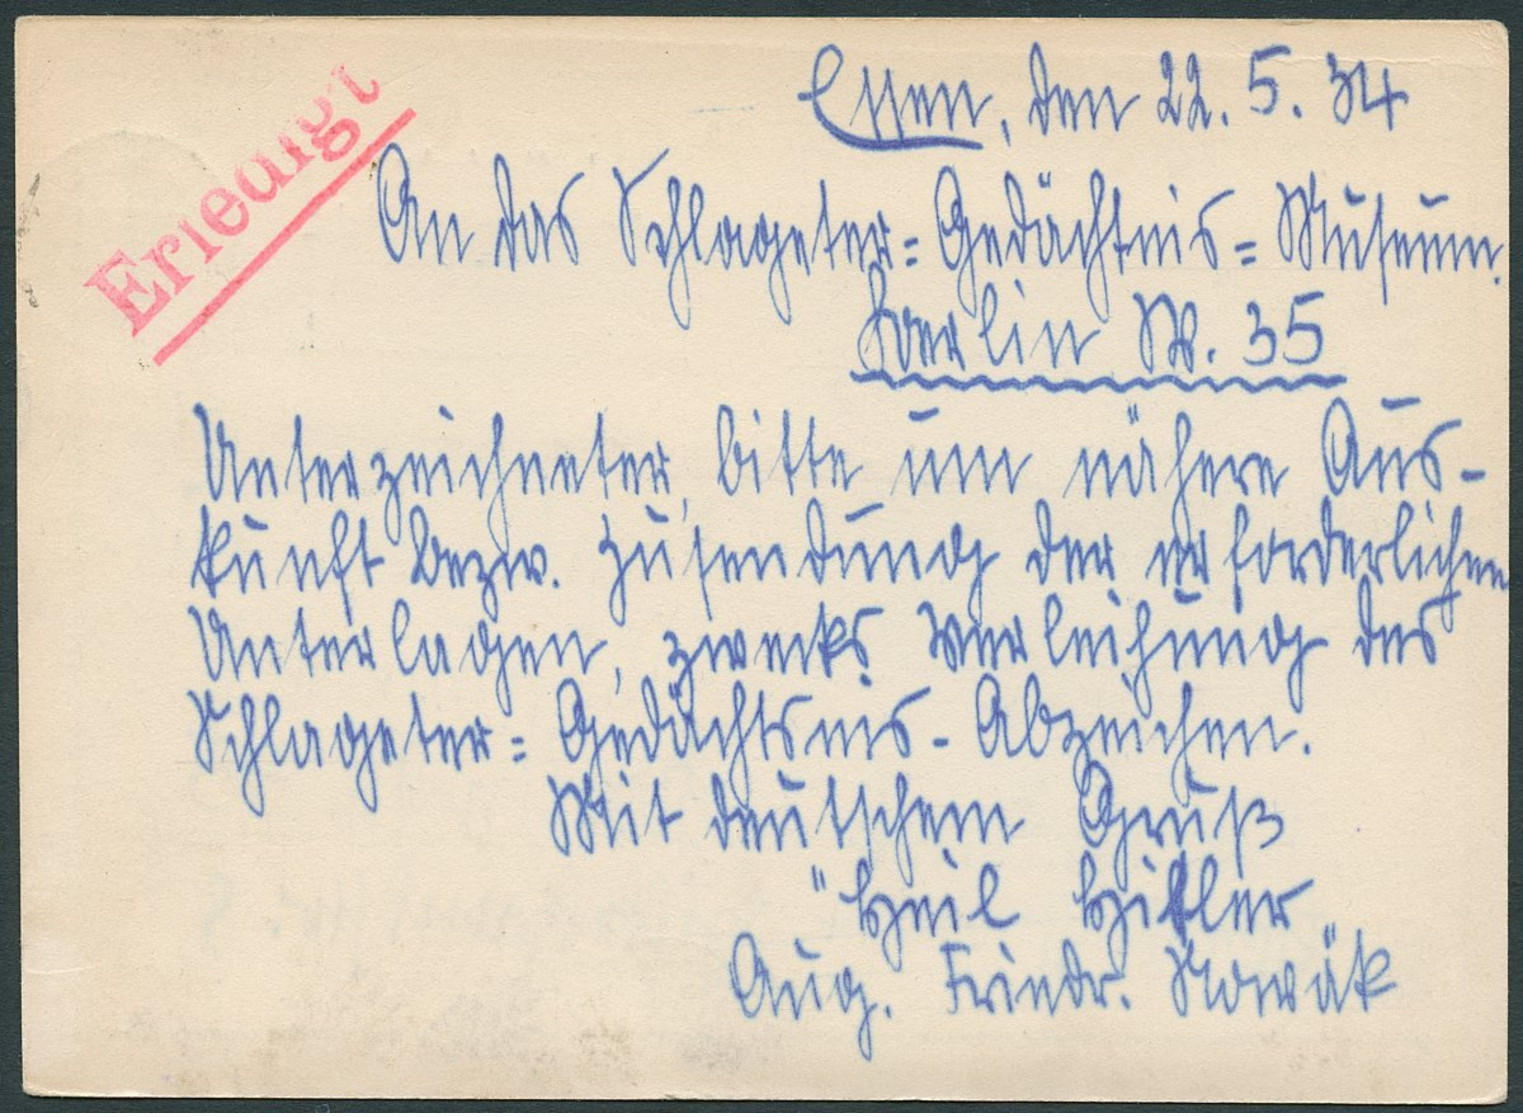 Erledigt
Essen, den 22. 5. 34
An das Schlageter=Gedächtnis=Museum.
Berlin W. 35
Unterzeichneter, bitte um nähere Aus-
kunft bezw. Zusendung der erforderlichen
Unterlagen, zwecks Verleihung des
Schlageter=Gedächtsnis-Abzeichen.
Mit deutschem Gruß
"Heil Hitler"
Aug. Friedr. Nowak